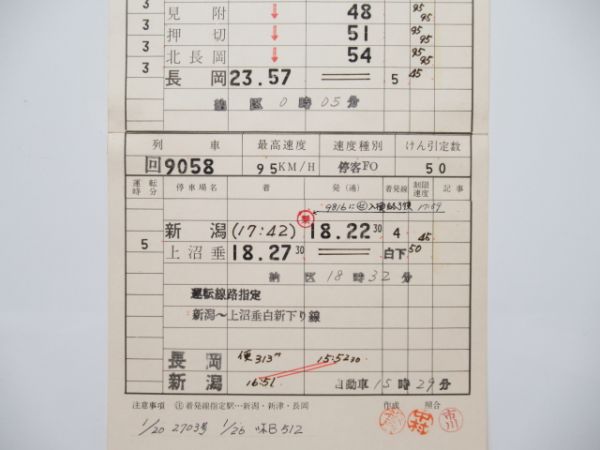 3 見附 ↓ 48 95 95
3 押切 ↓ 51 95 95
3 北長岡 ↓ 54 95 95
3 長岡 23.57 5 45
区 0時05分
列車 最高速度 速度種別 けん引定数
回9058 95KM/H 停客F0 50
運転時分 停車場名 着 発(通) 着発線 制限速度 記事
新潟 (17:42) 18.22 30 4 45
5 上沼垂 18.27 30 白下 50
区 18時32分
運転線路指定
新潟〜上沼垂白新下り線
長岡 便313M 15:52 30
新潟 16:51 自動車15時29分
注意事項 着発線指定駅…新潟・新津・長岡 作成 照合
中村 市川
1/20 2703号 1/26 B512